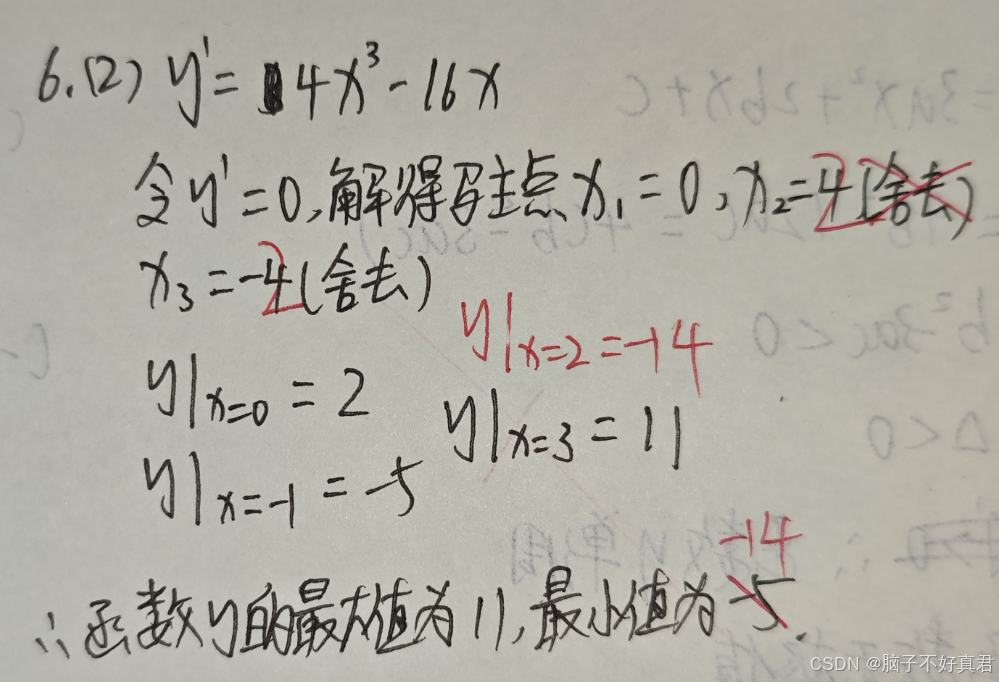 6.(2) y' = 4x³ - 16x
令y' = 0,解得驻点x₁ = 0, x₂ = 2(舍去)
x₃ = -2(舍去)
y|x=2 = -14
y|x=0 = 2
y|x=3 = 11
y|x=-1 = -5
-14
∴函数y的最大值为11,最小值为-5.
CSDN @脑子不好真君